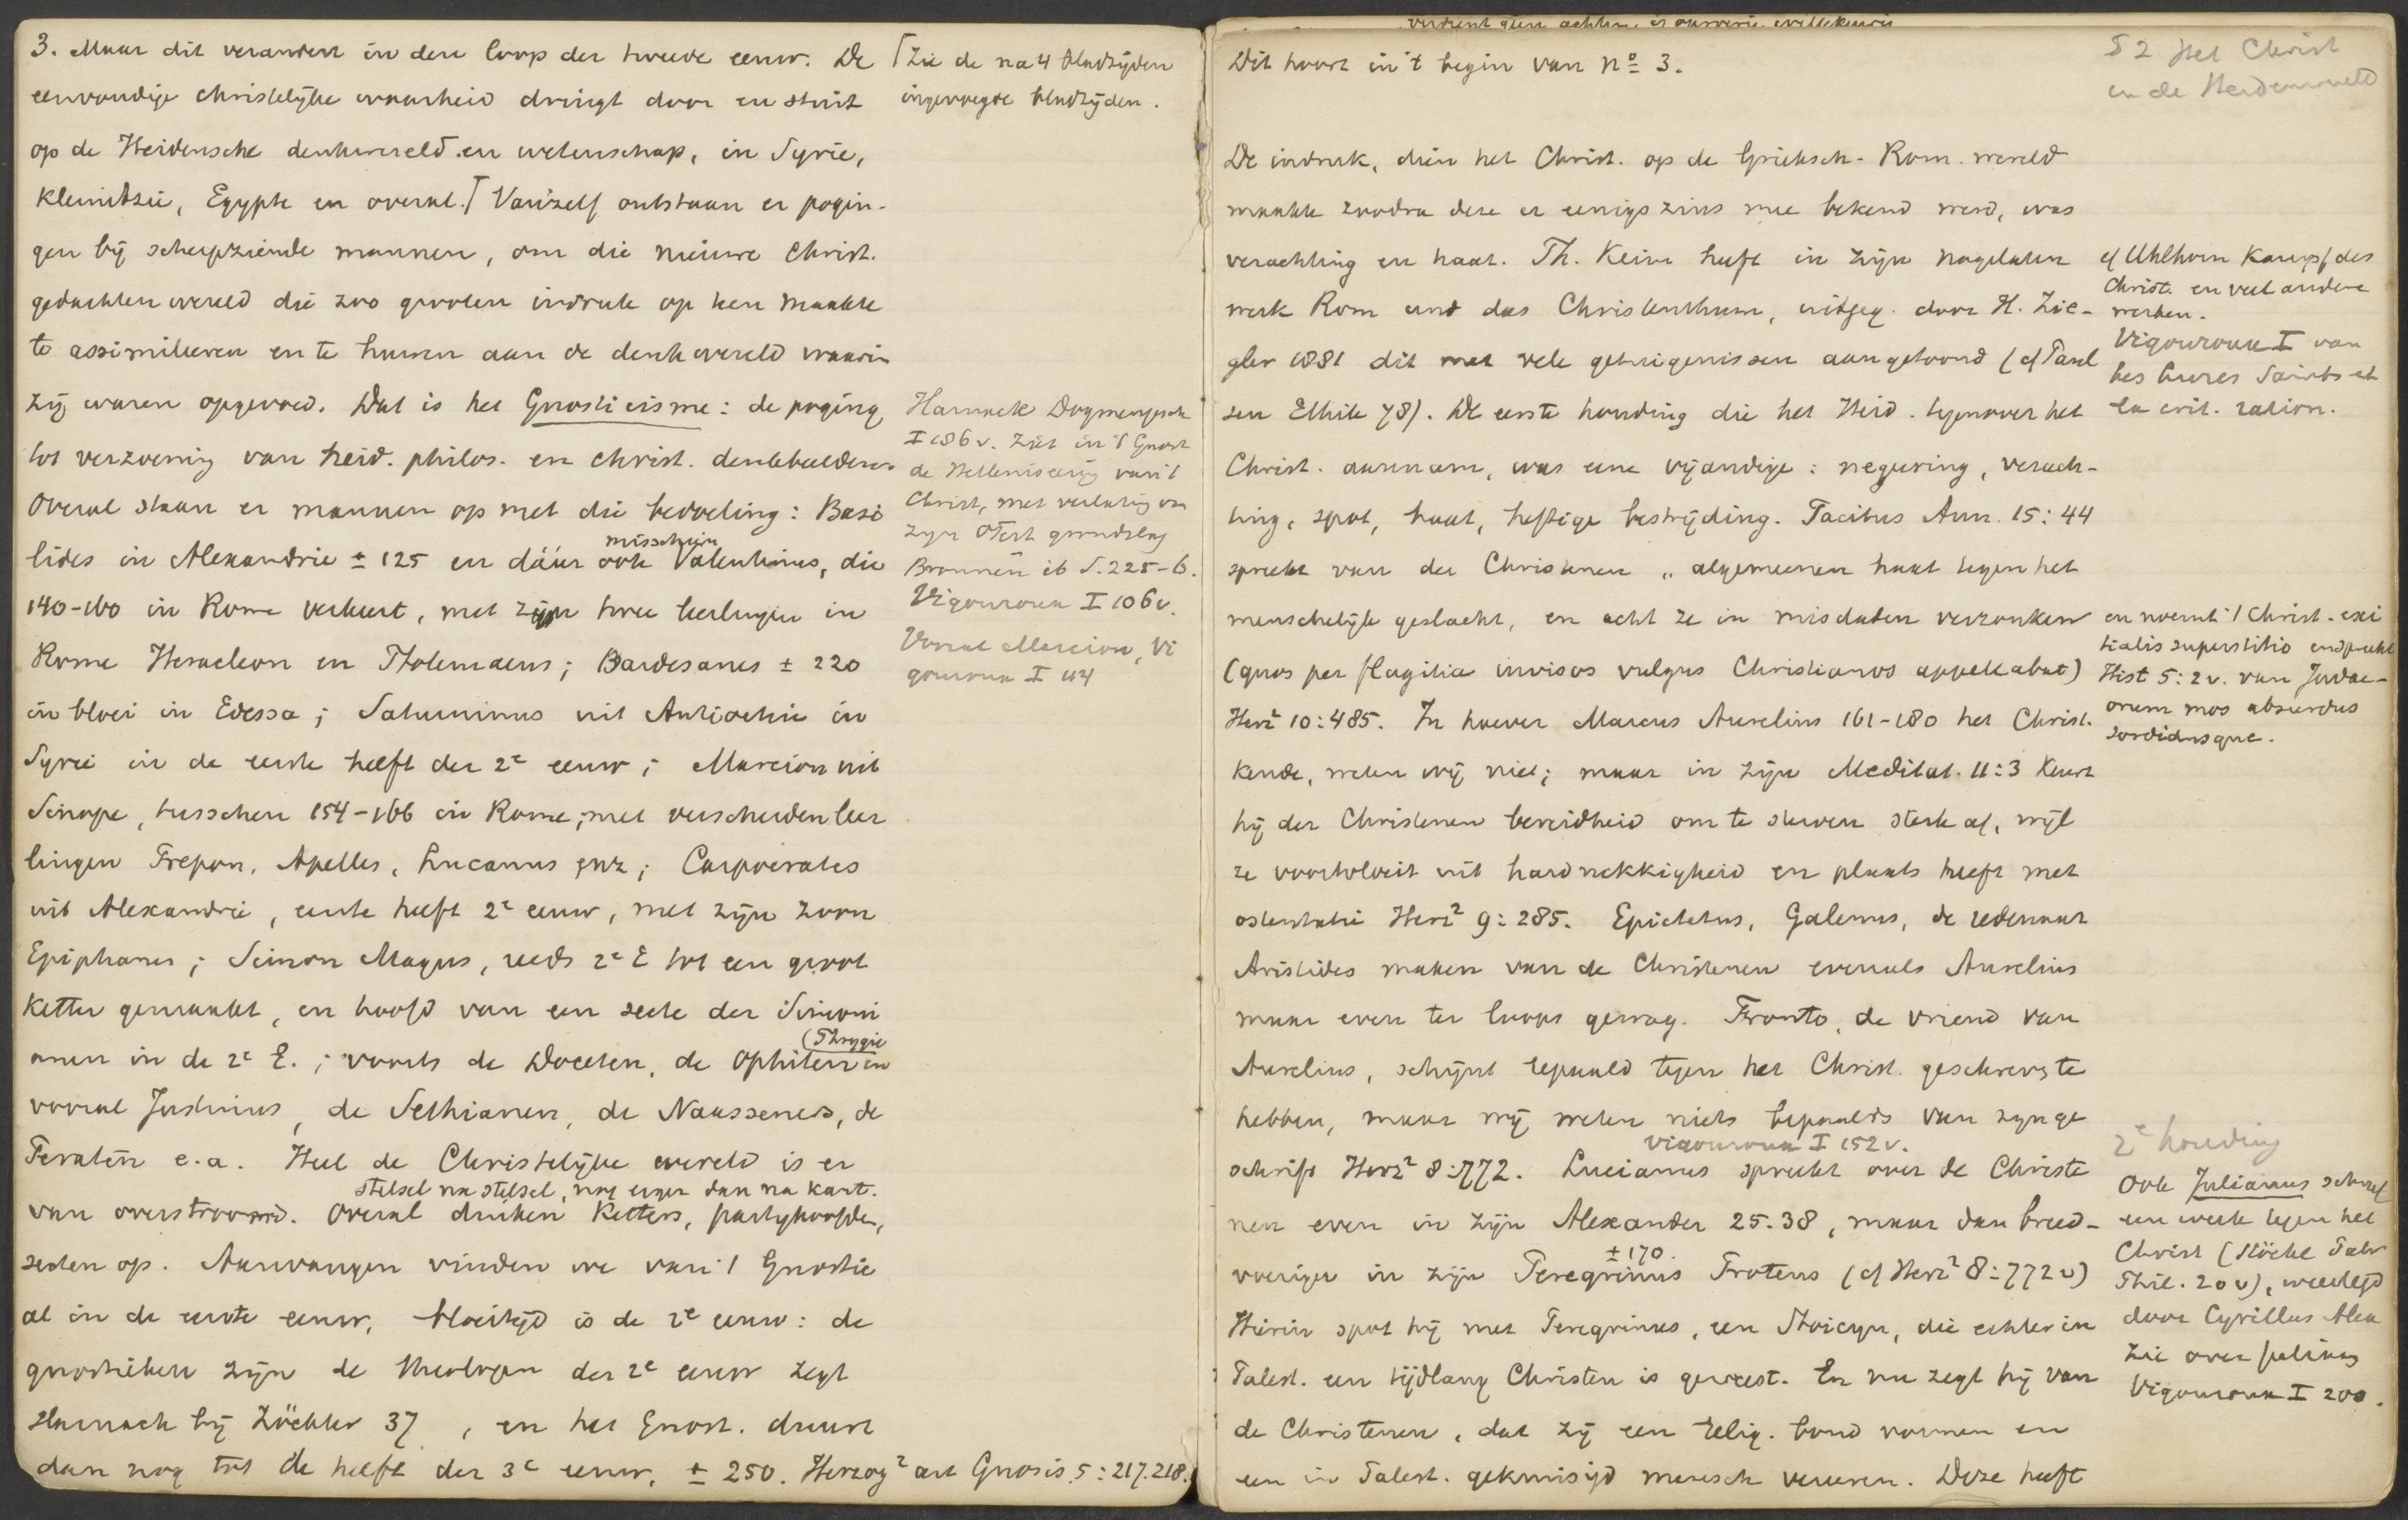 3. Maar dit verandert in den loop der tweede eeuw. De
eenvoudige christelijke waarheid dringt door en stuit
op de Heidensche denkwereld en wetenschap, in Syrie,
Kleinazie, Egypte en overal. ⌈ Vanzelf ontstaan er pogin-
gen bij scherpziende mannen, om die nieuwe Christ.
gedachtenwereld die zoo grooten indruk op hen maakte
te assimileeren en te huwen aan de denkwereld waarin
zij waren opgevoed. Dat is het Gnosticisme: de poging
tot verzoening van heid. philos. en christ. denkbeelden.
Overal staan er mannen op met die bedoeling: Basi
lides in Alexandrie ± 125 en dáár ook misschien Valentinus, die
140-160 in Rome verkeert, met zijn twee leerlingen in
Rome Heracleon en Ptolemaeus; Bardesanes ± 220
in bloei in Edessa; Saturninus uit Antiochie in
Syrie in de eerste helft der 2e eeuw; Marcion uit
Sinope, tusschen 154-166 in Rome, met verscheiden leer
lingen Prepon, Apelles, Lucanus enz; Carpocrates
uit Alexandrie, eerste helft 2e eeuw, met zijn zoon
Epiphanes; Simon Magus, reeds 2e E tot een groot
Ketter gemaakt, en hoofd van een secte der Simoni
anen in de 2e E.; voorts de Doceten, de Ophiten in
(Phrygie
vooral Justinus, de Sethianen, de Naassenes, de
Peraten e.a. Heel de Christelijke wereld is er
van overstroomd. Overal duiken Ketters, partyhoofden,
stelsel na stelsel, nog erger dan na Kant.
secten op. Aanvangen vinden we van 't Gnostic
al in de eerste eeuw, bloeitijd is de 2e eeuw: de
gnostieken zijn de theologen der 2e eeuw zegt
Harnack bij Zöckler 37, en het Gnost. duurt
dan nog tot de helft der 3e eeuw, ± 250. Herzog² art Gnosis 5:217.218.
⌈ Zie de na 4 bladzijden
ingevoegde bladzijden.
Harnack Dogmengesch
I 186 v. ziet in 't Gnost
de Helleniseering van 't
Christ, met verlating van
zyn OTest grondslag
Bronnen ib S. 225-6.
Vigouroux I 106 v.
Vooral Marcion, Vi
gouroux I 114
Dit hoort in 't begin van No 3.
§ 2 Het Christ
en de Heidenwereld
De indruk, dien het Christ. op de Grieksch-Rom. wereld
maakte zoodra deze er eenigszins mee bekend werd, was
verachting en haat. Th. Keim heeft in zijn nagelaten
werk Rom und das Christenthum, uitgeg. door H. Zie-
gler 1881 dit met vele getuigenissen aangetoond (cf Paul
sen Ethik 78). De eerste houding die het Heid. tegenover het
Christ. aannam, was eene vijandige: negeering, verach-
ting, spot, haat, heftige bestrijding. Tacitus Ann. 15:44
spreekt van der Christenen „algemeenen haat tegen het
menschelijk geslacht, en acht ze in misdaden verzonken
(quos per flagitia invisos vulgus Christianos appellabat)
Herz² 10:485. In hoever Marcus Aurelius 161-180 het Christ.
kende, weten wij niet; maar in zijn Meditat. 11:3 keurt
hij der Christenen bereidheid om te sterven sterk af, wijl
ze voortvloeit uit hardnekkigheid en plaats heeft met
ostentatie Herz² 9:285. Epictetus, Galenus, de redenaar
Aristides maken van de Christenen evenals Aurelius
maar even ter loops gewag. Fronto, de vriend van
Aurelius, schijnt bepaald tegen het Christ. geschreven te
hebben, maar wij weten niets bepaalds van zyn ge
schrift Herz² 8:772. Lucianus spreekt over de Christe
Vigouroux I 152 v.
nen even in zijn Alexander 25.38, maar dan breed-
voeriger in zijn Peregrinus Proteus (cf Herz² 8:772 v)
± 170.
Hierin spot hij met Peregrinus, een Stoicyn, die echter in
Palest. een tijdlang Christen is geweest. En nu zegt hij van
de Christenen, dat zij een relig. bond vormen en
een in Palest. gekruisigd mensch vereeren. Deze heeft
cf Uhlhorn Kampf des
Christ. en veel andere
werken.
Vigouroux I van
Les Livres Saints et
la crit. ration.
en noemt 't Christ. exi
tialis superstitio en spreekt
Hist 5:2 v. van Judae-
orum mos absurdus
sordidusque.
2e houding
Ook Julianus schreef
een werk tegen het
Christ (Stöckl Patr
Phil. 20 v), weerlegd
door Cyrillus Alex
zie over Julianus
Vigouroux I 200.